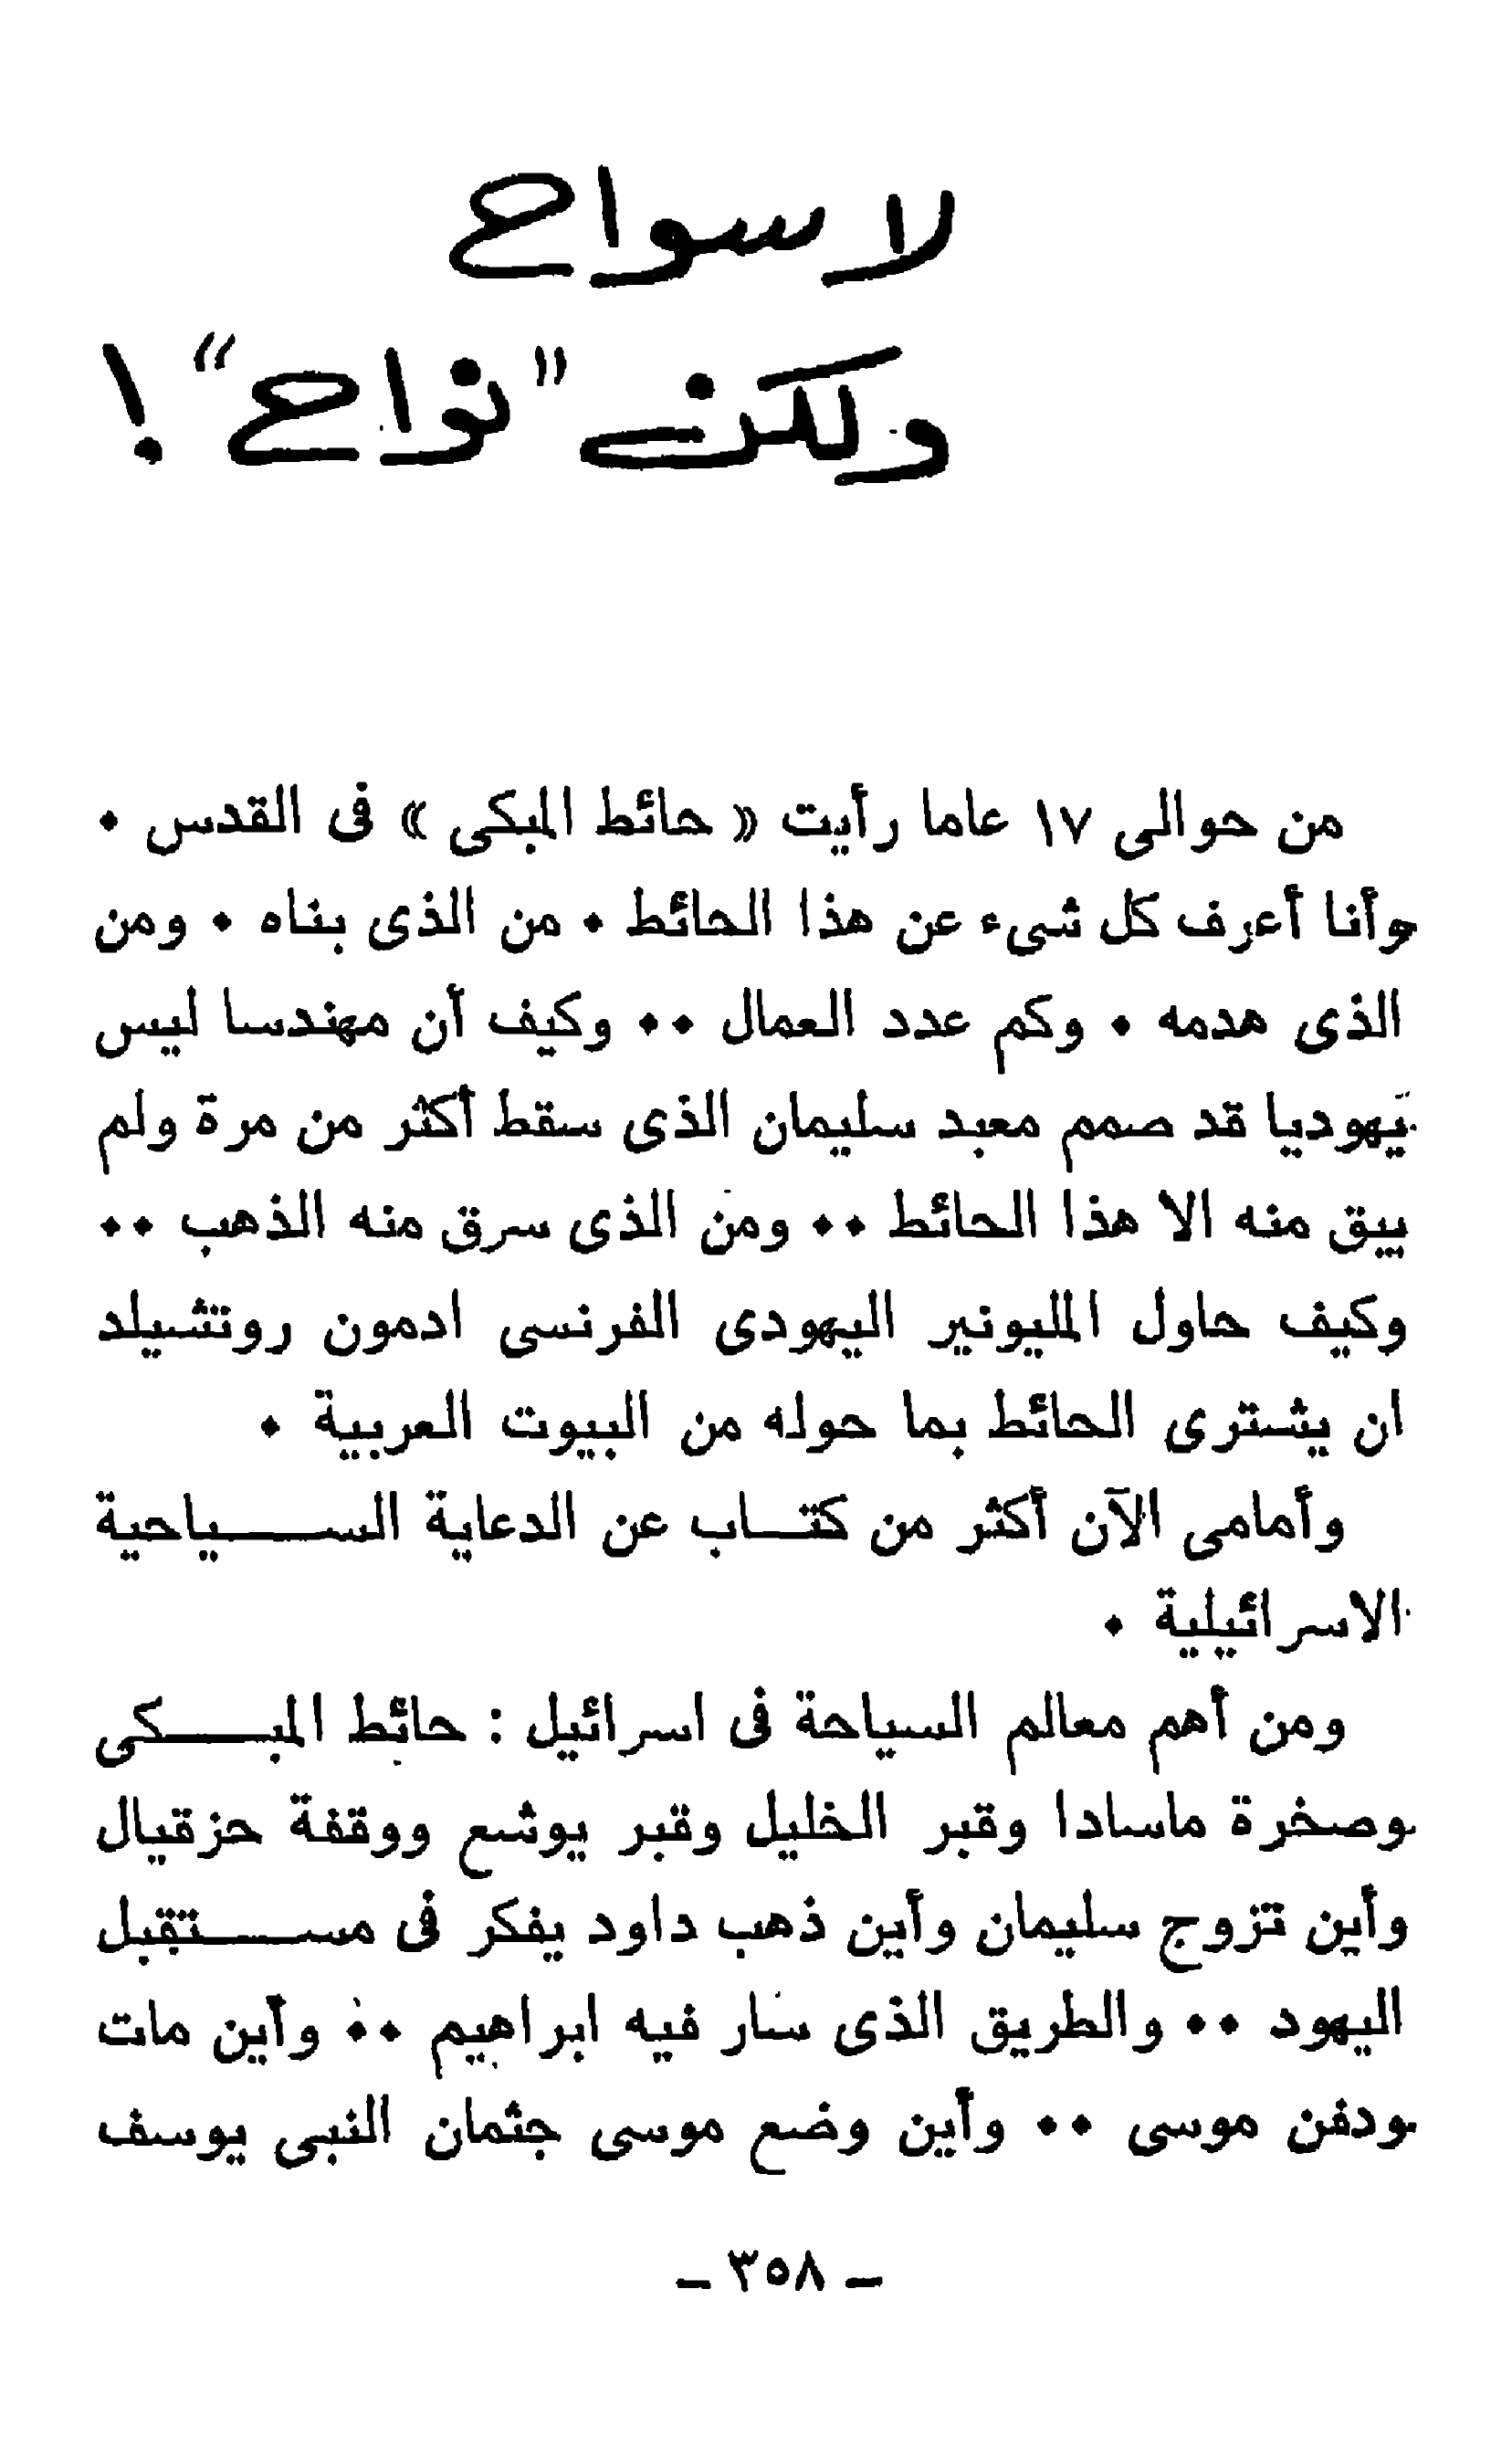 لا سواح
ولكن "نواح" !
من حوالى ١٧ عاما رأيت « حائط المبكى » فى القدس .
وأنا أعرف كل شىء عن هذا الحائط . من الذى بناه . ومن
الذى هدمه . وكم عدد العمال .. وكيف أن مهندسا ليس
يهوديا قد صمم معبد سليمان الذى سقط أكثر من مرة ولم
يبق منه الا هذا الحائط .. ومن الذى سرق منه الذهب ..
وكيف حاول المليونير اليهودى الفرنسى ادمون روتشيلد
ان يشترى الحائط بما حوله من البيوت العربية .
وأمامى الآن أكثر من كتـاب عن الدعاية السـياحية
الاسرائيلية .
ومن أهم معالم السياحة فى اسرائيل : حائط المبـكى
وصخرة ماسادا وقبر الخليل وقبر يوشع ووقفة حزقيال
وأين تزوج سليمان وأين ذهب داود يفكر فى مسـتقبل
اليهود .. والطريق الذى سار فيه ابراهيم .. وأين مات
ودفن موسى .. وأين وضع موسى جثمان النبى يوسف
- ٣٥٨ -